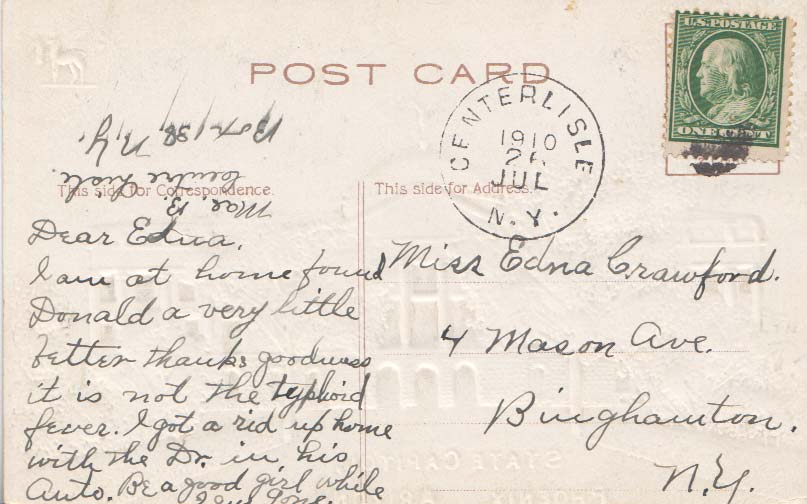 U.S. POSTAGE
ONE CENT
POST CARD
CENTERLISLE
1910
JUL
N.Y.
Box 38 N.Y.
Centre Lisle
Mar. 13
This side for Correspondence.
This side for Address.
Dear Edna,
I am at home found
Donald a very little
better thanks goodness
it is not the typhoid
fever. I got a rid up home
with the Dr. in his
Auto. Be a good girl while
I am gone.
Miss Edna Crawford.
4 Mason Ave.
Binghamton.
N.Y.
STATE CAPIT